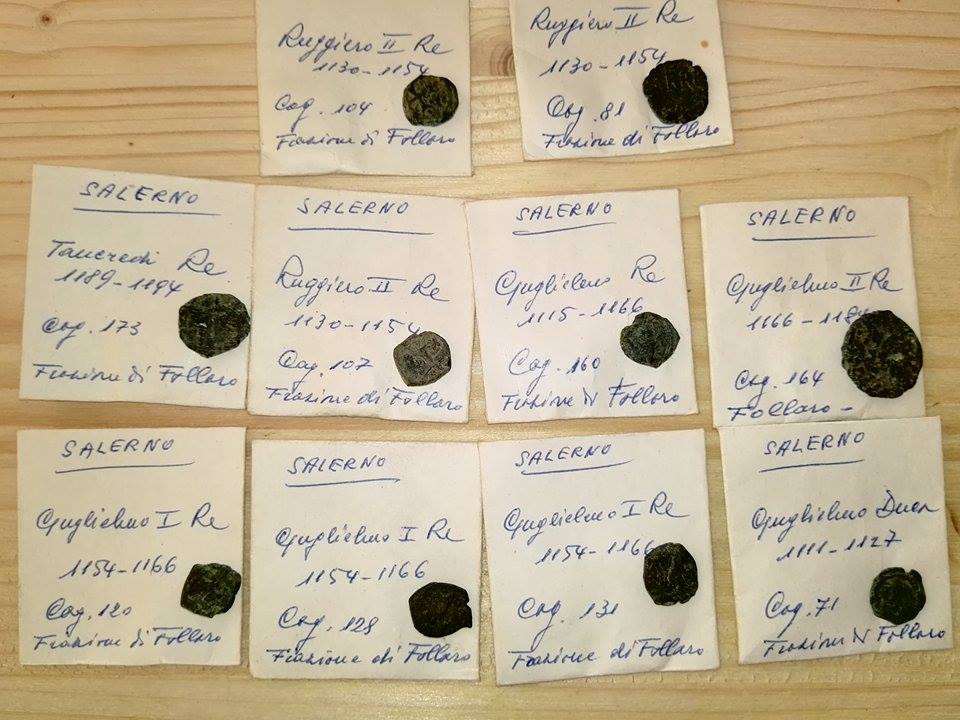 Ruggiero II Re
1130-1154
Cag. 104
Frazione di Follaro
Ruggiero II Re
1130-1154
Cag. 81
Frazione di Follaro
SALERNO
Tancredi Re
1189-1194
Cag. 173
Frazione di Follaro
SALERNO
Ruggiero II Re
1130-1154
Cag. 107
Frazione di Follaro
SALERNO
Guglielmo Re
1115-1166
Cag. 160
Frazione di Follaro
SALERNO
Guglielmo II Re
1166-1189
Cag. 164
Follaro-
SALERNO
Guglielmo I Re
1154-1166
Cag. 120
Frazione di Follaro
SALERNO
Guglielmo I Re
1154-1166
Cag. 128
Frazione di Follaro
SALERNO
Guglielmo I Re
1154-1166
Cag. 131
Frazione di Follaro
SALERNO
Guglielmo Duca
1111-1127
Cag. 71
Frazione di Follaro